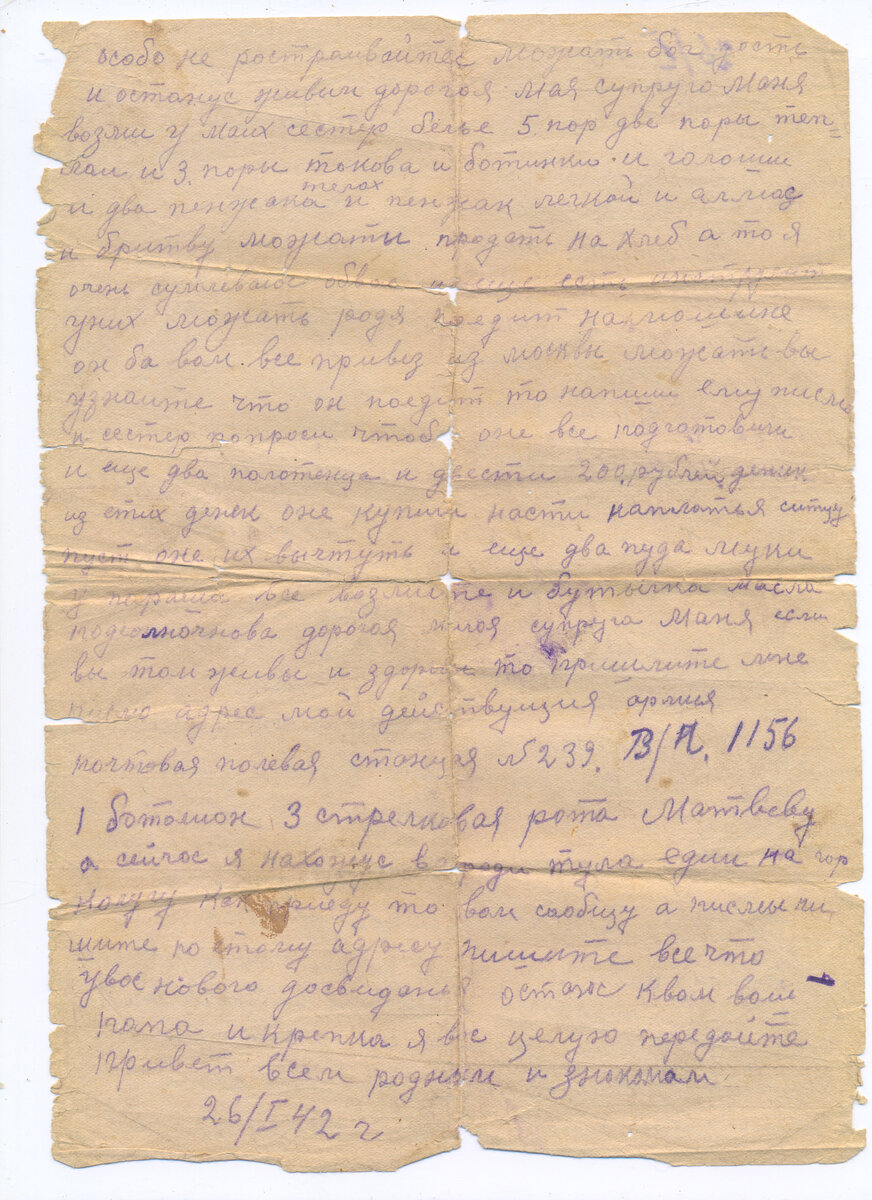 особо не ростраивайтес можать бог дость
и останус живым дорогоя мая супруго Маня
возми у маих сестер бельё 5 пор две поры теп=
лаи и 3 поры токова и ботинки и голоши
и два пенжака и пенжак легкой и
и бритву можати продать на хлеб а то я
очень сумлеваюс обвас и еще есть инструмент
уних можать родя поедит
он ба вам все привёз из москвы можати вы
узнаите что он поедит то напиши ему писмо
и сестер попроси чтоб оне все подготовили
и еще два полотенца и двести 200 рублей денек
из етих денек оне купили насти наплатья ситцу
пуст оне их вычтуть и еще два пуда муки
у все возмите и бутылка масла
подсолночнова дорогоя милоя супруга Маня если
вы там живы и здоровы то пришлите мне
писмо адрес мой действуищия армия
почтовая полевая станция № 239. В/П. 1156
1 ботолион 3 стрелковая рота Матвееву
а сейчос я нахожус вгороди тула едим на гор
Колугу как приеду то вам сообщу а писмы пи
шите по етому адресу пишите все что
увос нового досвидания остаюс квам ваш
папа и крепка я вас целую передойте
привет всем родным и знокомам
26/I 42 г